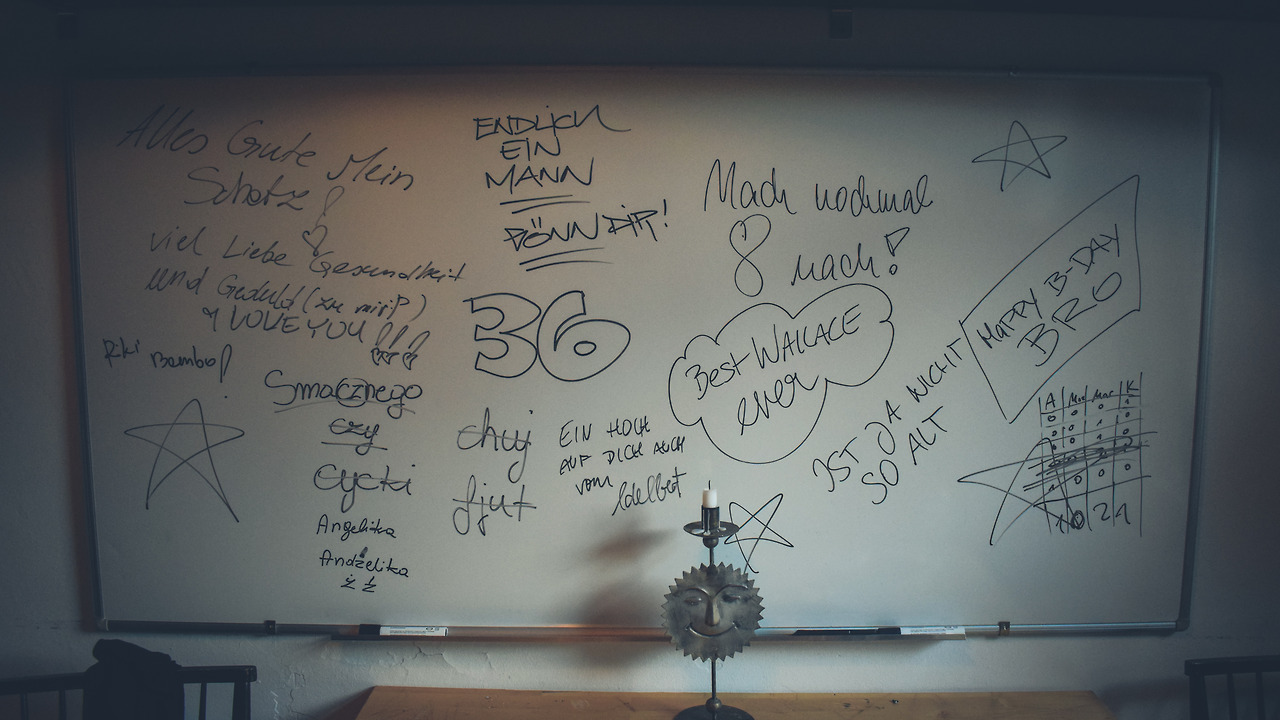 Alles Gute Mein
Schatz!
viel Liebe Gesundheit
und Geduld (zu mir!?)
I LOVE YOU!!!
Riki Bambo!
ENDLICH
EIN
MANN
GÖNN DIR!
36
Mach nochmal
8 nach!
Best WALLACE
ever
HAPPY B-DAY
BRO
IST JA NICHT
SO ALT
Smacznego
czy
Cycki
Angelika
Andżelika
ż ź
chuj
fjut
EIN HOCH
AUF DICH AUCH
vom
Adelbert
A K
0 0 0 1
0 0 1 0
0 0 0
0 2 1